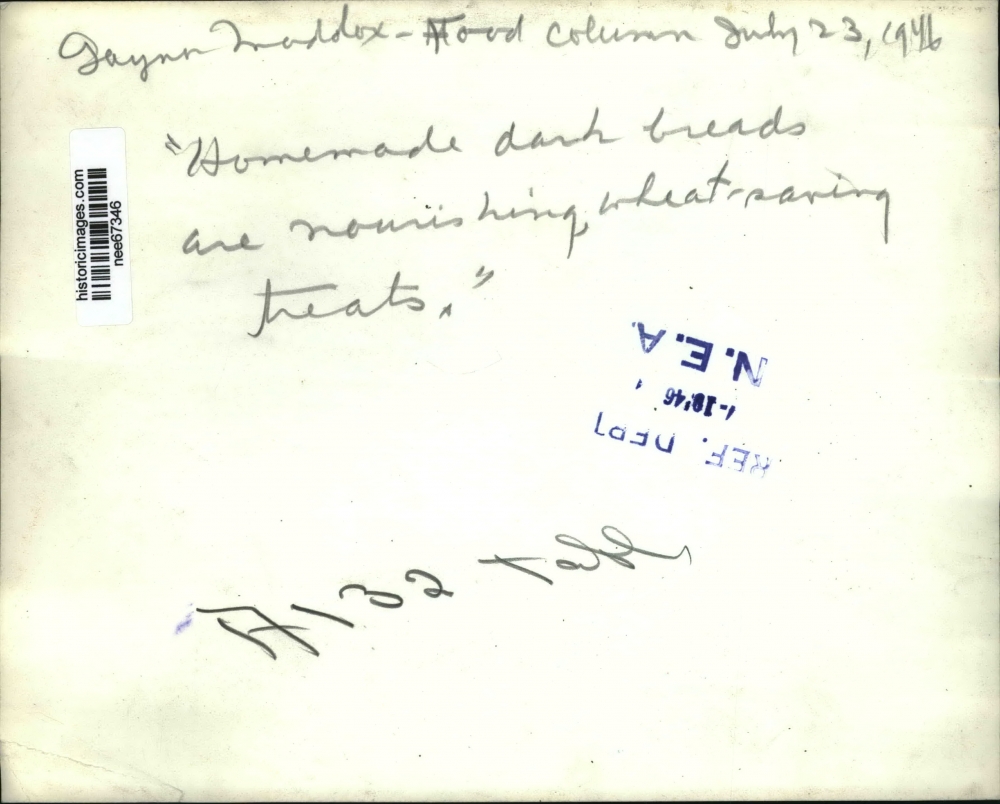 Gaynor Maddox - Food column July 23, 1946
"Homemade dark breads
are nourishing, wheat-saving
treats."
historicimages.com
nee67346
N.E.A.
-18'46
REF. DEPT
A132